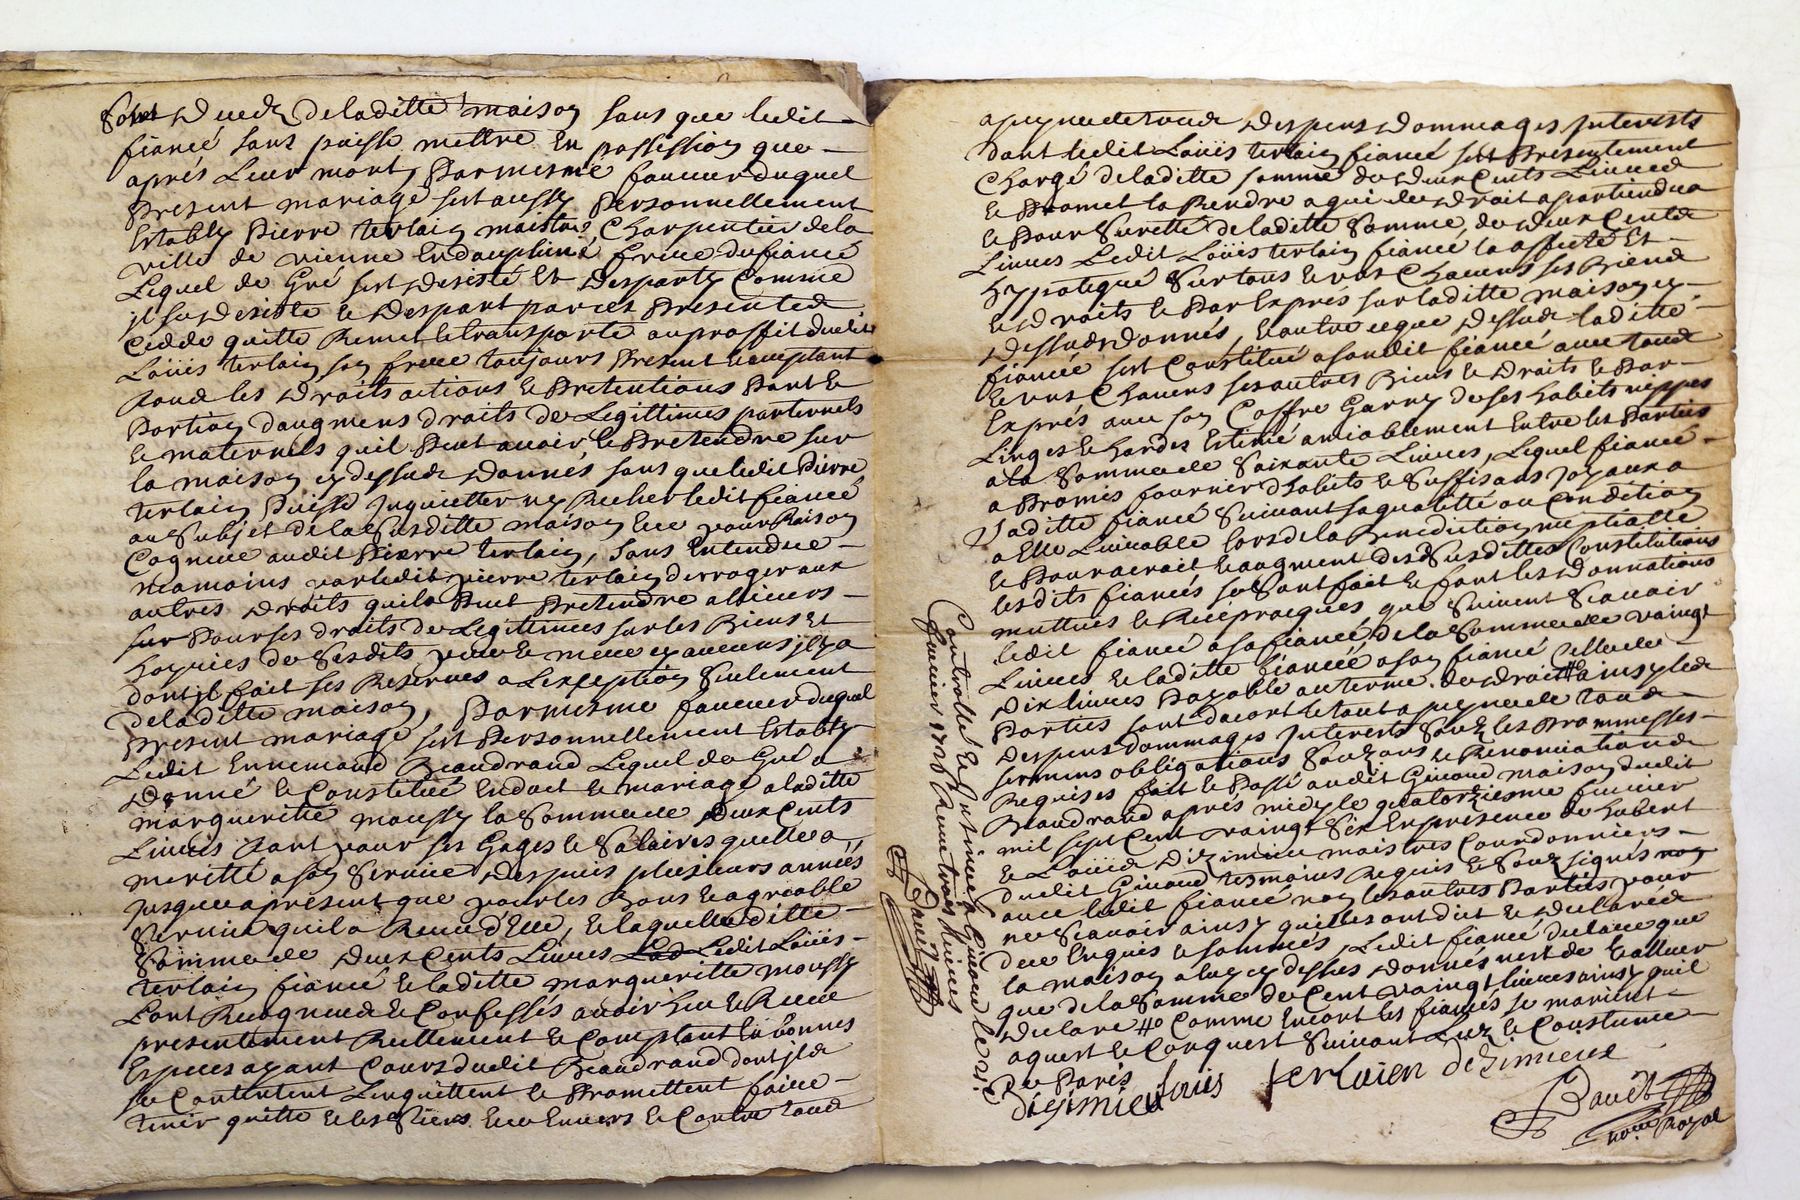 Duedz deladitte maison sans que ledit
fiancé sans puisse mettre En possession que
aprés Leur mort, Par mesme faueur duquel
Present mariage sest aussy Personnellement
Estably Pierre terlain maistre Charpentier dela
ville de vienne En dauphiné frere du fiancé
Lequel de Gré sest desisté Et desparty Comme
il se desiste Et despart par ces Presentes
Cedde quitte Remet Et transporte au proffit dudit
Loüis terlain son frere toujours Present Acceptant
tous les droits actions Et Pretentions Part Et
Portion daugment droits de Legittimes parternels
Et maternels quil Peut auoir Et Pretendre sur
la maison cy dessus donnés sans que ledit Pierre
terlain Puisse Inquietter ny Recher ledit fiancé
au Subjet de la Susditte maison Eue pour Raison
audit Pierre terlain, sans Entendre
neamoins par ledit pierre terlain derroger aux
autres droits quil Peut Pretendre
sur Pour ses droits de Legitimes sur les Biens Et
hoyries de Sesdits pere Et mere
dont il fait ses Reserves a Lexception Seulement
Deladitte maison, Par mesme faueur duquel
Present mariage sest Personnellement Estably
Ledit Ennemond Beaudrand Lequel de Gré a
Donné Et Constitué En dot Et mariage a laditte
margueritte moussy la Somme de deux Cents
Liures tant pour ses Gages Et Salaires quelle a
meritté a son Seruice despuis plusieurs années
Jusques apresent que pour les Bons Et agreable
Seruice quil a Receu d'Elle, Et laquelle ditte
Somme de deux Cents Liures Ledit Loüis
terlain fiancé Et laditte margueritte moussy
sont Recogneus Et Confessés auoir heu Et Receu
presentement Reellement Et Comptant En bonnes
Especes ayant Cours dudit Beaudrand dont ils
se Contentent Lenquittent Et Promettent faire
tenir quitte Et les Siens Envers Et Contre tous
a peyne de tous despens dommages Interests
dont ledit Loüis terlain fiancé sest Presentement
Chargé deladitte somme de deux Cents Liures
Et Promet la Rendre a qui de droit apartiendra
Et Pour Surette deladitte Somme de deux Cents
Liures Ledit Loüis terlain fiancé la affecté Et
hypotequé Sur tous Et uns Chacuns ses Biens
Et droits Et Par Exprés sur laditte maison cy
dessus donnés, Et outre ce que dessus laditte
fiancée sest Constitué a sondit fiancé auec tous
Et uns Chacuns ses autres Biens Et droits Et Par
Exprés auec son Coffre Garny de ses habits nippes
Linges Et hardes Estimé amiablement Entre les Parties
a la Somme de Soixante Liures, Lequel fiancé
a Promis fournir d'habits Et Suffisans Joyaux a
laditte fiancé Suiuant sa qualitté ou Condition
a Elle Liurable Lors de la Benediction nuptialle
Et Pour acroit Et augment des Susdittes Constitutions
lesdits fiancés se Sont fait Et font les donnations
mutües Et Reciproques que Suiuent Scauoir
ledit fiancé a sa fiancée de la Somme de vaingt
Liures Et laditte fiancée a son fiancé Celle de
Dix liures Payable au terme de droit ainsy lesd
Parties sont dacort Et tout a peyne de tous
despens dommages Interests Sous les Prommesses
sermens obligations Soumissions Et Renonciations
Requises fait Et Passé audit Giraud maison dudit
Beaudrand aprés midy le quatorziesme feurier
mil sept Cent vaingt Six En presence de hubert
Et Loüis dizimieu maistres Courdonniers
dudit Giraud tesmoins Requis Et Sous signés
auec ledit fiancé non les autres Parties pour
ne Scauoir ainsy quelles ont dit Et declarés
de ce Enquis Et sommés, Ledit fiancé declare que
la maison a luy cy dessus donnés nest de Valluer
que de la Somme de Cent vaingt liures ainsy quil
declare Comme Encort les fiancés se marient
aquest Et Conquest Suiuant Lus Et Coustume
De Paris
dizimieu louis terlaien dezimieux
Baudet
no.re Royal
Controllé Et Insinué a Giraud le
feurier 1726 Receu trois liures
Baudet